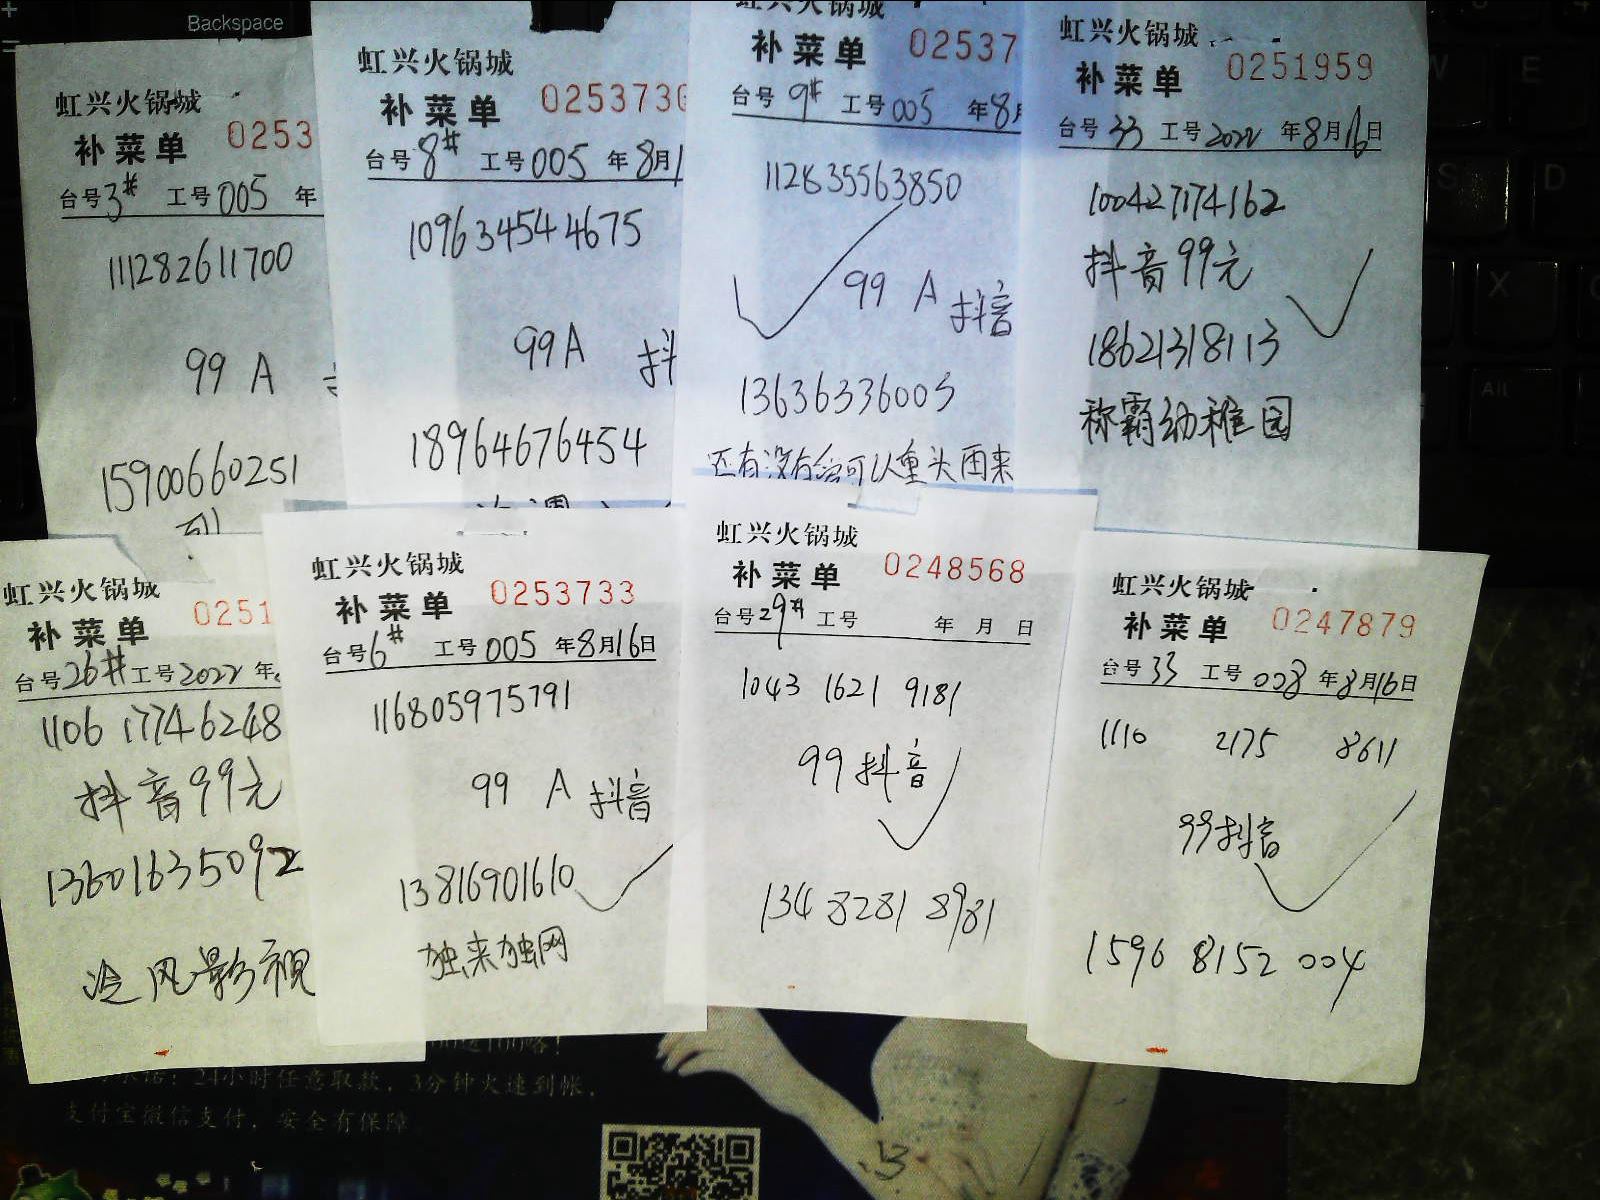 Backspace
虹兴火锅城
补菜单 0253
台号3# 工号005 年
111282611700
99 A
15900660251
虹兴火锅城
补菜单 0253730
台号8# 工号005 年8月1
109634544675
99A 抖
18964676454
虹兴火锅城
补菜单 02537
台号9# 工号005 年8月
112835563850
99 A 抖音
13636336005
还有没有会可以重头再来
虹兴火锅城
补菜单 0251959
台号33 工号2022 年8月16日
100427174162
抖音99元
18621318113
称霸幼稚园
虹兴火锅城
补菜单 0251
台号26# 工号2022 年
1106 17746248
抖音99元
13601635092
冷风影视
虹兴火锅城
补菜单 0253733
台号6# 工号005 年8月16日
116805975791
99 A 抖音
13816901610
独来独网
虹兴火锅城
补菜单 0248568
台号29# 工号 年 月 日
1043 1621 9181
99抖音
134 8281 8981
虹兴火锅城
补菜单 0247879
台号33 工号008 年8月16日
1110 2175 8611
99抖音
1596 8152 004
W
E
S
D
X
Alt
24小时任意取款，3分钟火速到帐，
支付宝微信支付，安全有保障